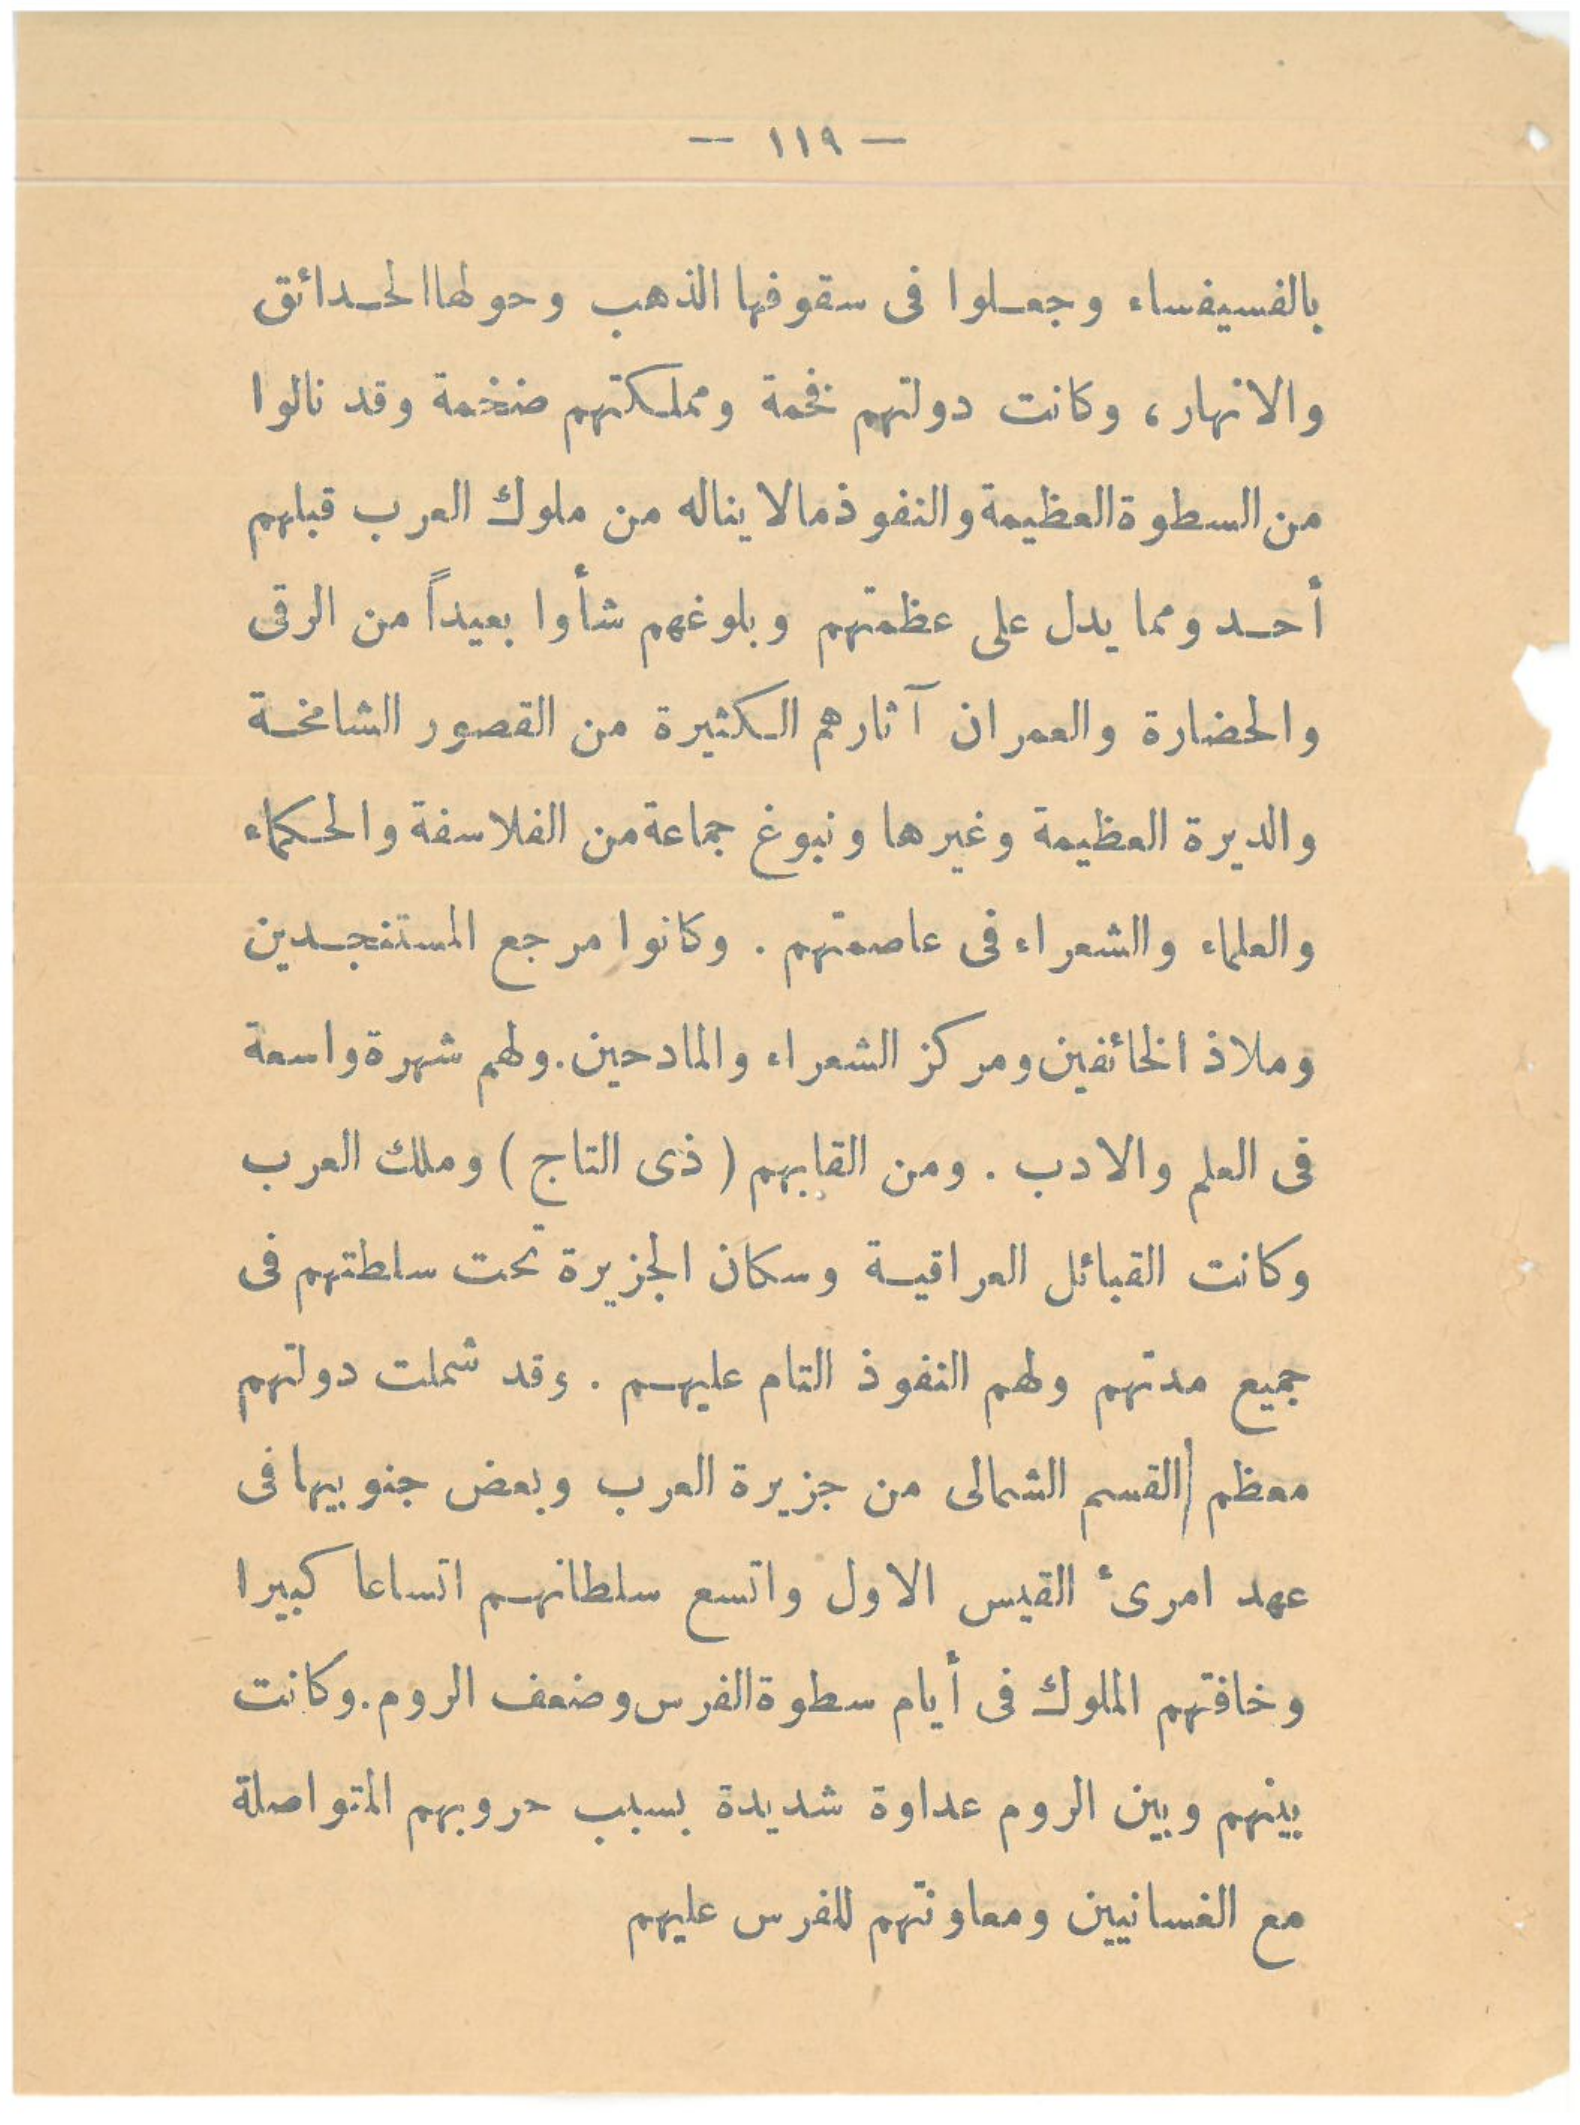 — ١١٩ —
بالفسيفساء وجعلوا فى سقوفها الذهب وحولها الحدائق
والانهار، وكانت دولتهم فخمة ومملكتهم ضخمة وقد نالوا
من السطوة العظيمة والنفوذ مالا يناله من ملوك العرب قبلهم
أحد ومما يدل على عظمتهم وبلوغهم شأوا بعيداً من الرقى
والحضارة والعمران آثارهم الكثيرة من القصور الشامخة
والديرة العظيمة وغيرها ونبوغ جماعة من الفلاسفة والحكماء
والعلماء والشعراء فى عاصمتهم . وكانوا مرجع المستنجدين
وملاذ الخائفين ومركز الشعراء والمادحين. ولهم شهرة واسعة
فى العلم والادب . ومن القابهم ( ذى التاج ) وملك العرب
وكانت القبائل العراقية وسكان الجزيرة تحت سلطتهم فى
جميع مدتهم ولهم النفوذ التام عليهم . وقد شملت دولتهم
معظم القسم الشمالى من جزيرة العرب وبعض جنوبيها فى
عهد امرىء القيس الاول واتسع سلطانهم اتساعا كبيرا
وخافتهم الملوك فى أيام سطوة الفرس وضعف الروم. وكانت
بينهم وبين الروم عداوة شديدة بسبب حروبهم المتواصلة
مع الغسانيين ومعاونتهم للفرس عليهم